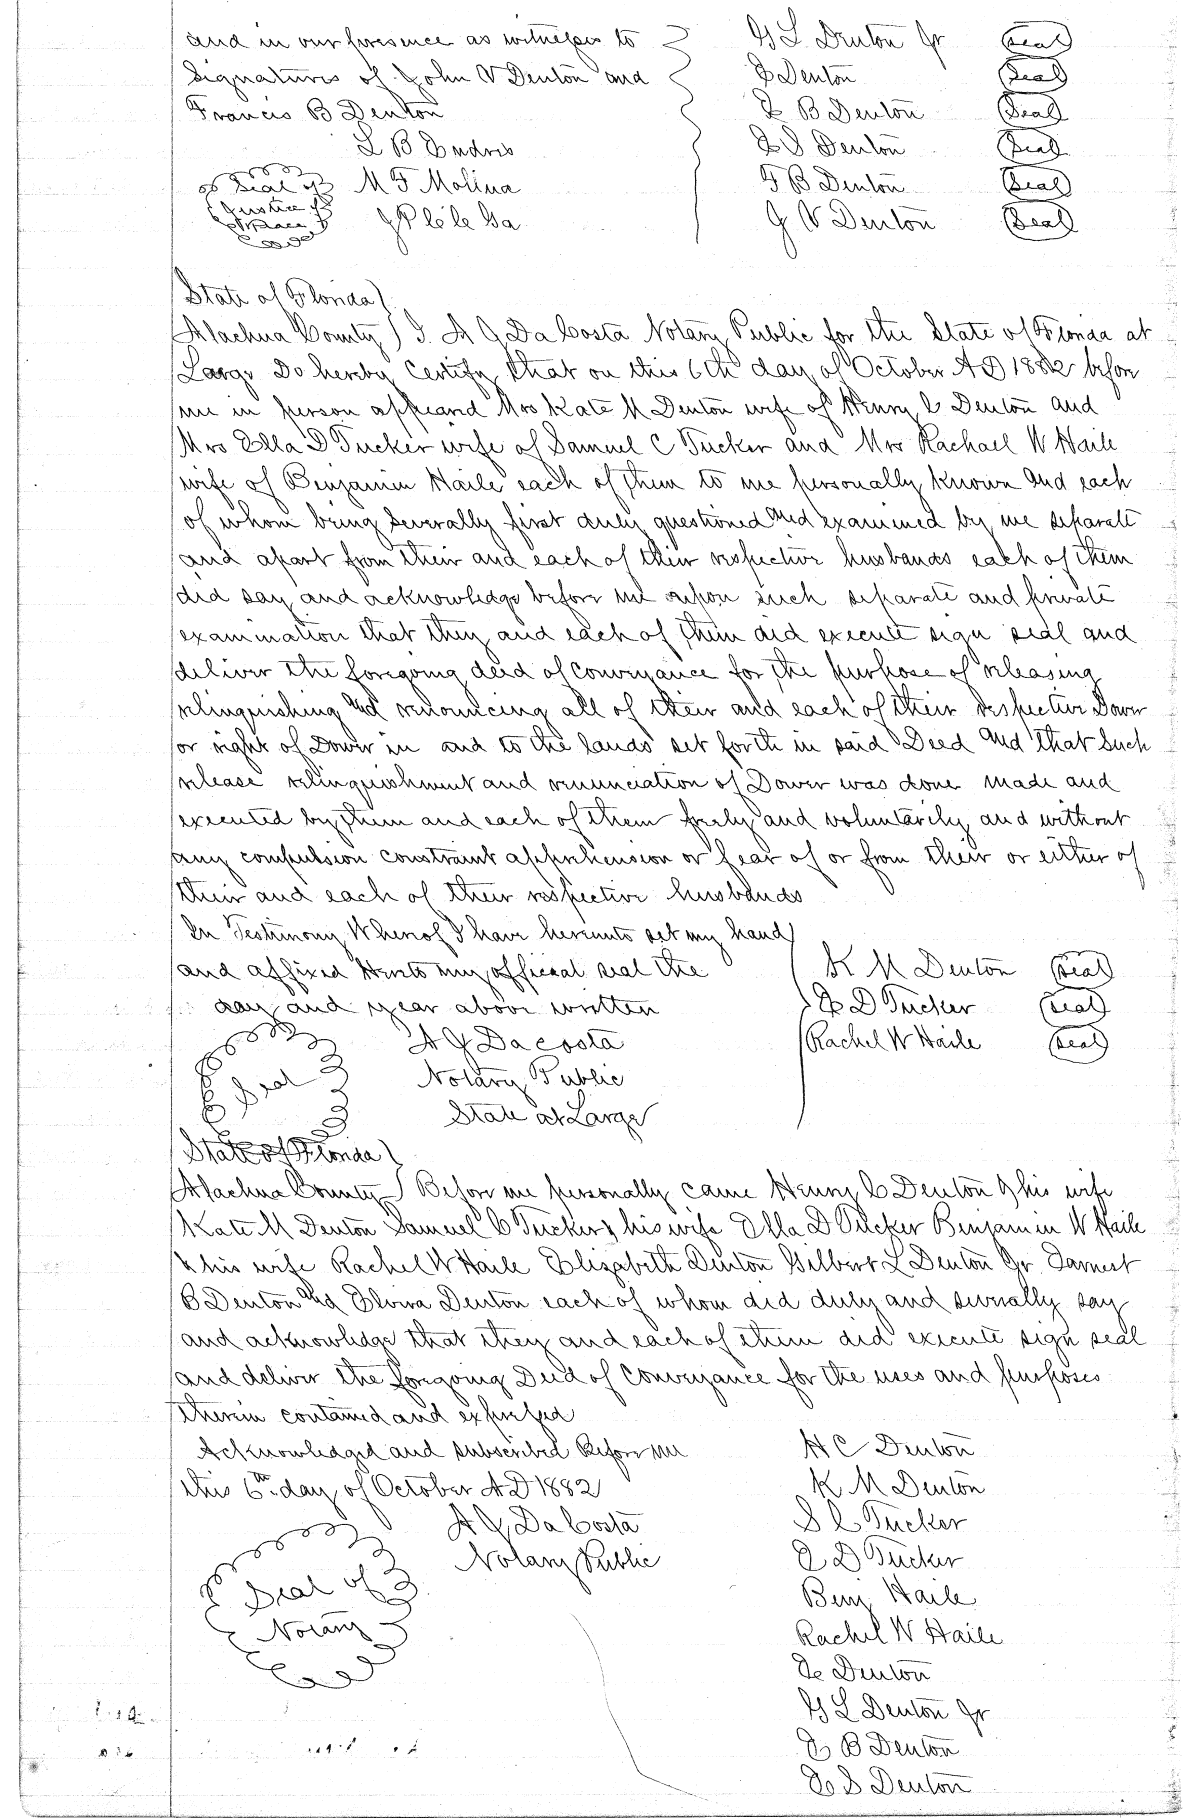 and in our presence as witnesses to G L Denton Jr Seal
Signatures of John V Denton and E Denton Seal
Francis B Denton E B Denton Seal
L B Endris E S Denton Seal
Seal of M F Molina F B Denton Seal
Justice of
Peace J V Denton Seal
State of Florida
Alachua County I. A J Da Costa Notary Public for the State of Florida at
Large Do hereby Certify that on this 6th day of October A D 1882 before
me in person appeared Mrs Kate M Denton wife of Henry C Denton and
Mrs Ella D Tucker wife of Samuel C Tucker and Mrs Rachael W Haile
wife of Benjamin Haile each of them to me personally known and each
of whom being severally first duly questioned and examined by me separate
and apart from their and each of their respective husbands each of them
did say and acknowledge before me upon such separate and private
examination that they and each of them did execute sign seal and
deliver the foregoing deed of conveyance for the purpose of releasing
relinquishing and renouncing all of their and each of their respective Dower
or right of Dower in and to the lands set forth in said Deed and that such
release relinquishment and renunciation of Dower was done made and
executed by them and each of them freely and voluntarily and without
any compulsion constraint apprehension or fear of or from their or either of
their and each of their respective husbands
In Testimony Whereof I have hereunto set my hand
and affixed Hereto my official seal the K M Denton Seal
day and year above written E D Tucker Seal
A J Da costa Rachel W Haile Seal
Seal Notary Public
State at Large
State of Florida
Alachua County Before me personally came Henry C Denton & his wife
Kate M Denton Samuel C Tucker & his wife Ella D Tucker Benjamin W Haile
& his wife Rachel W Haile Elizabeth Denton Gilbert L Denton Jr. Earnest
B Denton and Elvira Denton each of whom did duly and severally say
and acknowledge that they and each of them did execute sign seal
and deliver the foregoing Deed of Conveyance for the uses and purposes
therein contained and expressed
Acknowledged and subscribed Before me H C Denton
this 6th day of October A D 1882 K M Denton
A J Da Costa S C Tucker
Notary Public E D Tucker
Seal of Benj Haile
Notary Rachel W Haile
E Denton
G L Denton Jr
E B Denton
E S Denton